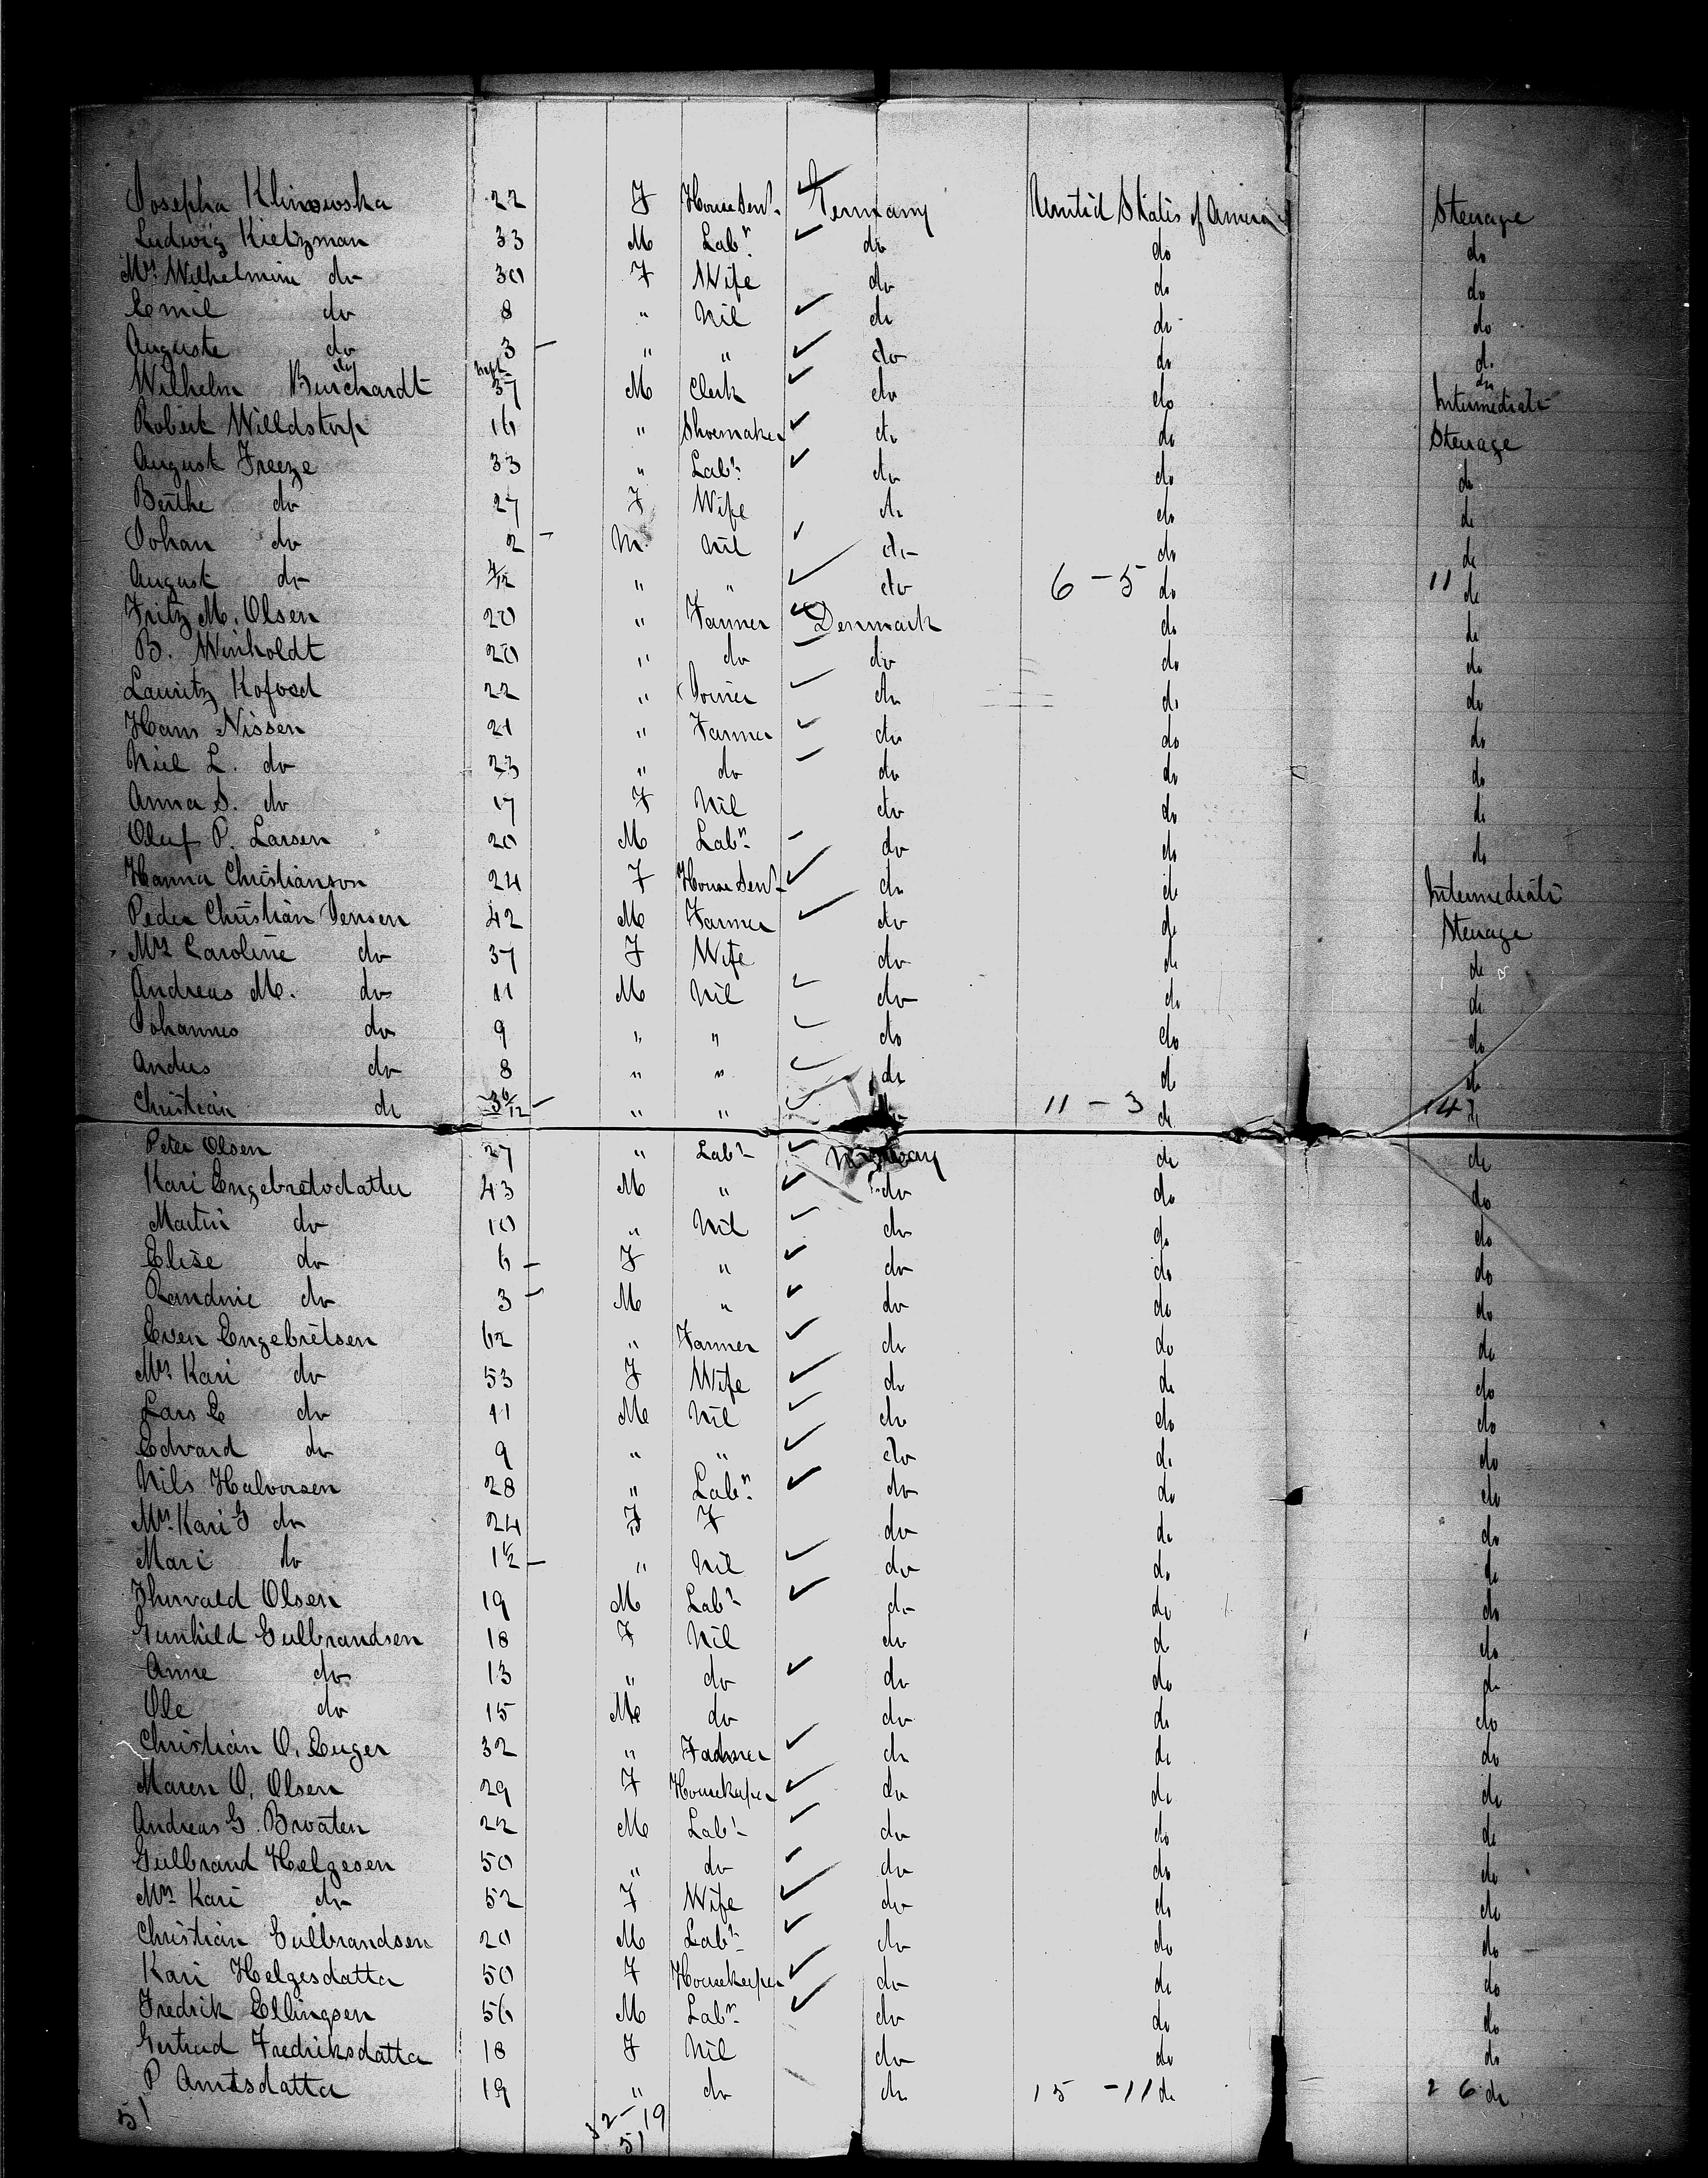 Josepha Klinowska 22 F House Servt. Germany United States of America Steerage
Ludwig Kietzman 33 M Labr. do do do
Mrs Wilhelmine do 30 F Wife do do do
Emil do 8 " Nil do do do
Auguste do 3 – " " do do do
do do
Wilhelm Burchardt 37 M Clerk do do Intermediate
Robert Willdstorp 16 " Shoemaker do do Steerage
August Freeze 33 " Labr. do do do
Berthe do 27 F Wife do do do
Johan do 2 – M. Nil do do do
August do 4/12 " " do 6 – 5 do 11 do
Fritz M. Olsen 20 " Farmer Denmark do do
B. Winholdt 20 " do do do do
Lauritz Kofoed 22 " Joiner do do do
Hans Nissen 21 " Farmer do do do
Niel L. do 23 " do do do do
Anna S. do 17 F Nil do do do
Oluf P. Larsen 20 M Labr. do do do
Hanna Christianson 24 F House Servt. do do Intermediate
Peder Christian Jensen 42 M Farmer do do Steerage
Mrs Caroline do 37 F Wife do do do
Andreas M. do 11 M Nil do do do
Johannes do 9 " " do do do
Andres do 8 " " do do do
Christian do 3 6/12 – " " 11 – 3 do 14 do
Peter Olsen 27 " Labr. Norway do do
Kari Engebretsdatter 43 M " do do do
Martin do 10 " Nil do do do
Elise do 6 – F " do do do
Randine do 3 – M " do do do
Even Engebretsen 62 " Farmer do do do
Mrs Kari do 53 F Wife do do do
Lars E do 11 M Nil do do do
Edvard do 9 " " do do do
Nils Halvorsen 28 " Labr. do do do
Mrs. Kari G do 24 F F do do do
Mari do 1½ – " Nil do do do
Thorvald Olsen 19 M Labr. do do do
Gunhild Gulbrandsen 18 F Nil do do do
Anne do 13 " do do do do
Ole do 15 M do do do do
Christian O. Enger 32 " Farmer do do do
Maren O. Olsen 29 F Housekeeper do do do
Andreas G. Broaten 22 M Labr. do do do
Gulbrand Helgesen 50 " do do do do
Mrs Kari do 52 F Wife do do do
Christian Gulbrandsen 20 M Labr. do do do
Kari Helgesdatter 50 F Housekeeper do do do
Fredrik Ellingsen 56 M Labr. do do do
Gertrud Fredriksdatter 18 F Nil do do do
P Amtsdatter 19 " do do 15 – 11 do 26 do
51 32 – 19
51